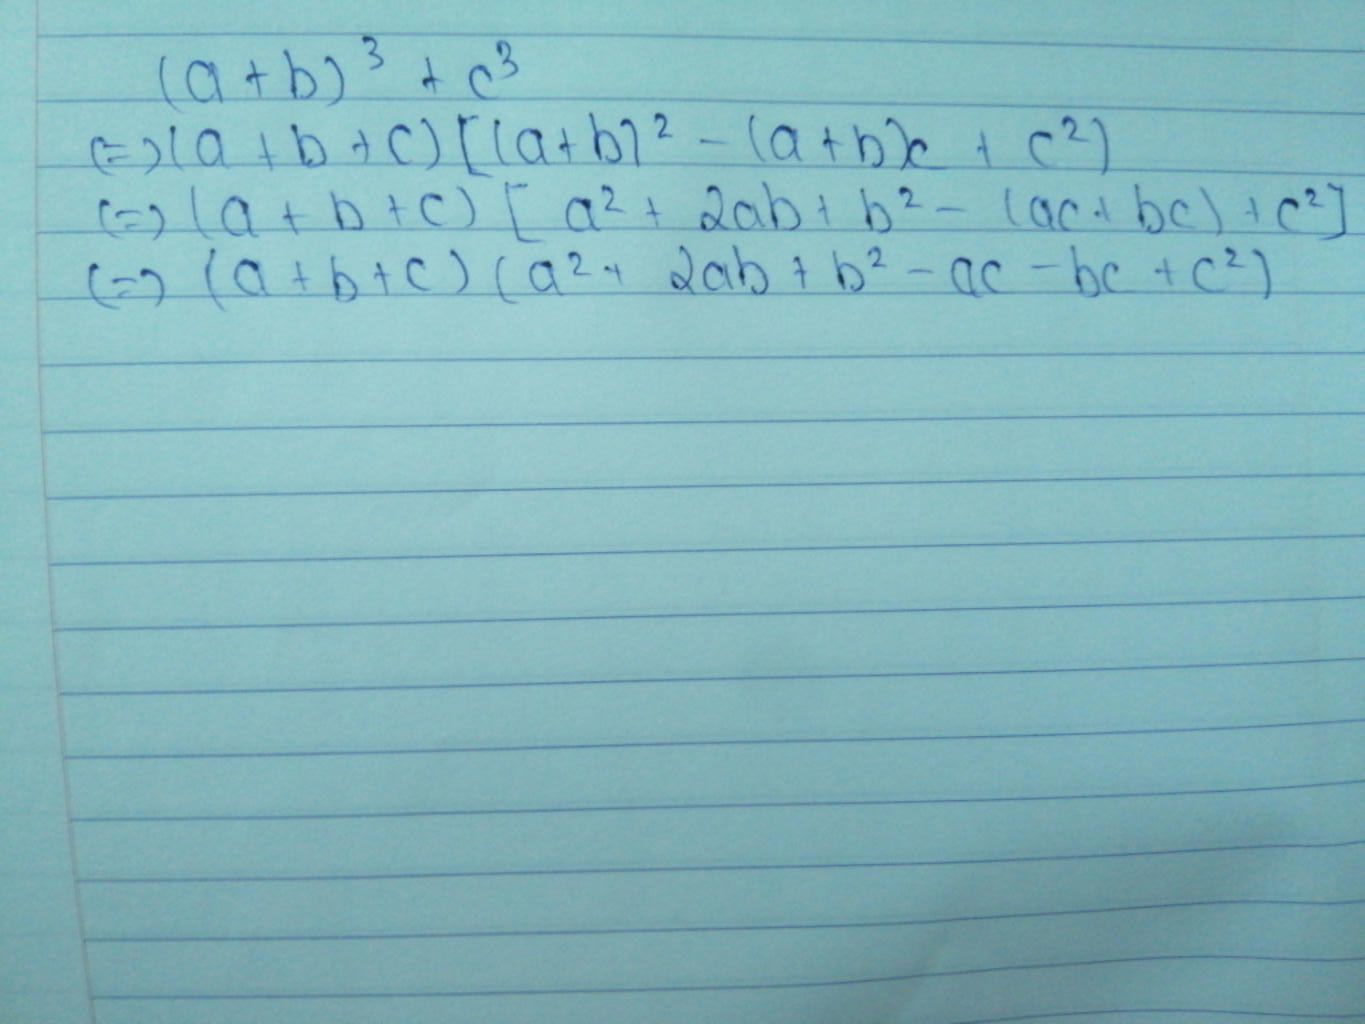 (a + b)³ + c³
(=)(a + b + c) [(a+b)² - (a + b)c + c²)
(=) (a + b + c) [ a² + 2ab + b² - (ac + bc) + c²]
(=) (a + b + c) (a² + 2ab + b² - ac - bc + c²)